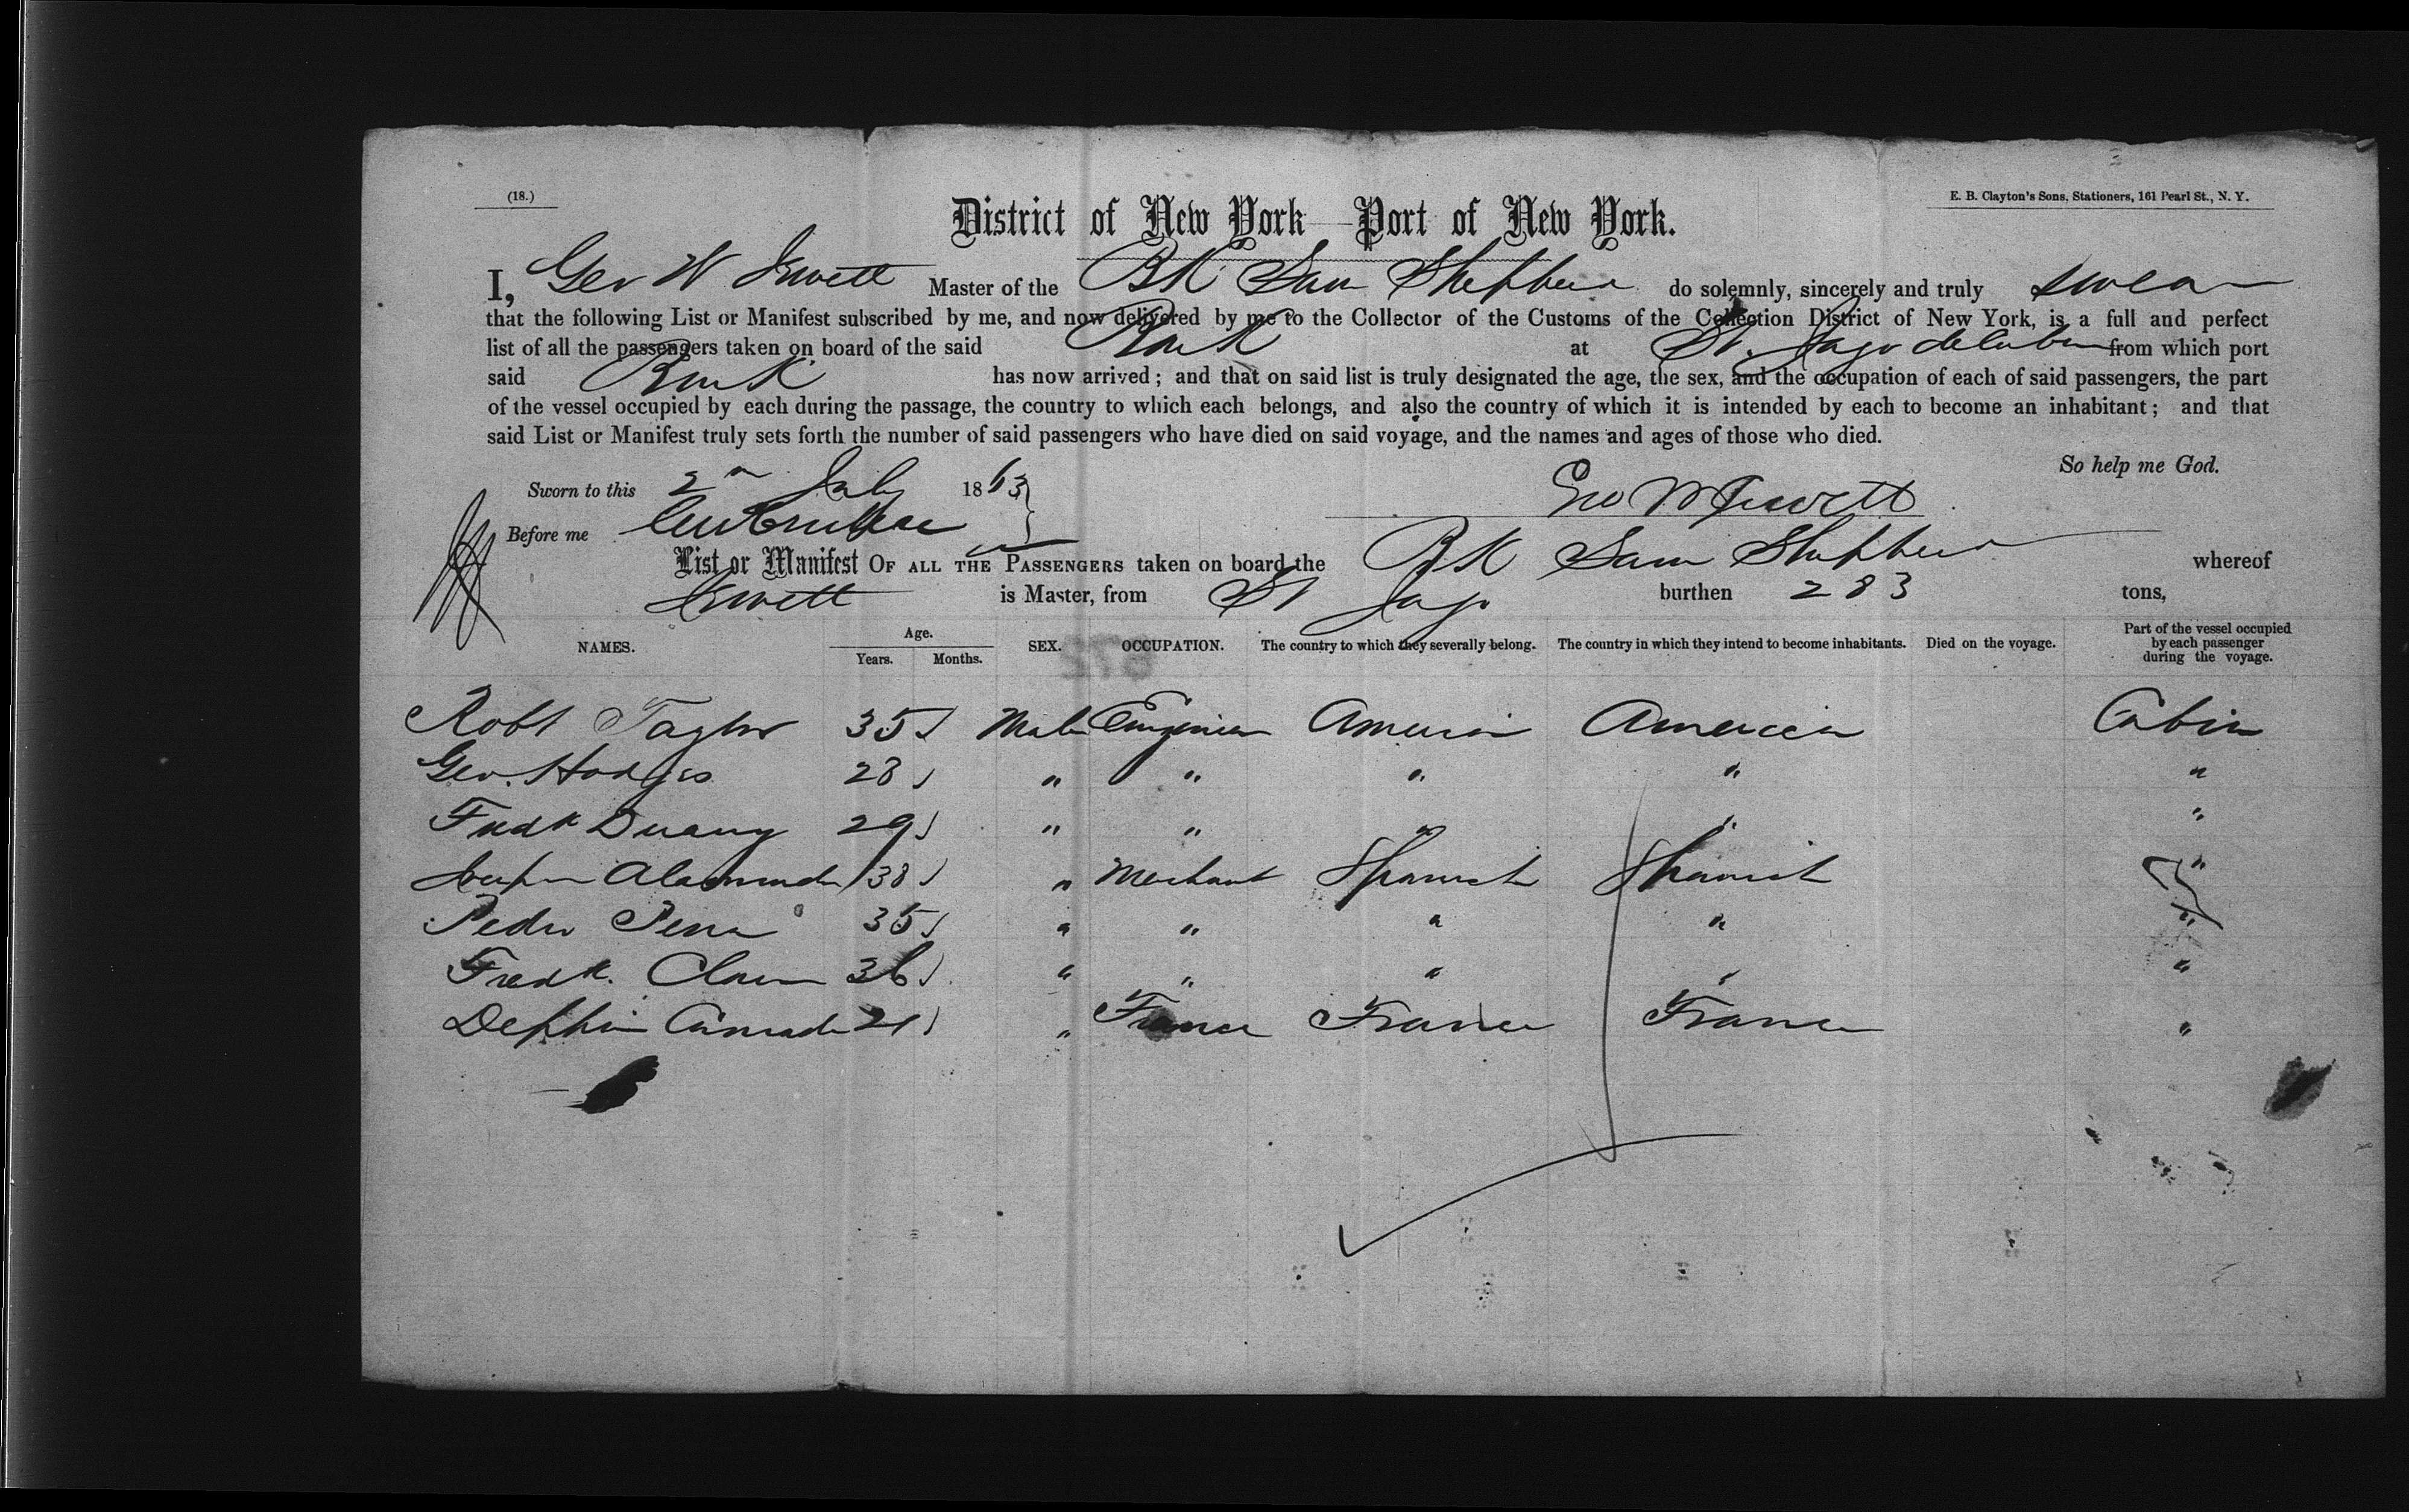 (18.)
E. B. Clayton's Sons, Stationers, 161 Pearl St., N. Y.
District of New York Port of New York.
I, Geo W Jewett Master of the Bk Sam Shepherd do solemnly, sincerely and truly swear
that the following List or Manifest subscribed by me, and now delivered by me to the Collector of the Customs of the Collection District of New York, is a full and perfect
list of all the passengers taken on board of the said Bark at St. Jago de Cuba from which port
said Bark has now arrived; and that on said list is truly designated the age, the sex, and the occupation of each of said passengers, the part
of the vessel occupied by each during the passage, the country to which each belongs, and also the country of which it is intended by each to become an inhabitant; and that
said List or Manifest truly sets forth the number of said passengers who have died on said voyage, and the names and ages of those who died.
So help me God.
Sworn to this 2 July 1863
Geo W Jewett
Before me
List or Manifest OF ALL THE PASSENGERS taken on board the Bk Sam Shepherd whereof
Jewett is Master, from St Jago burthen 283 tons,
NAMES. Age. Years. Months. SEX. OCCUPATION. The country to which they severally belong. The country in which they intend to become inhabitants. Died on the voyage. Part of the vessel occupied by each passenger during the voyage.
Robt Taylor 35 Male Engineer America America Cabin
Geo. Hodges 28 " " " " "
Fredk Duany 29 " " " " "
38 " Merchant Spanish Spanish "
Pedro Pena 35 " " " " "
Fredk. 36 " " " " "
21 " France France France "